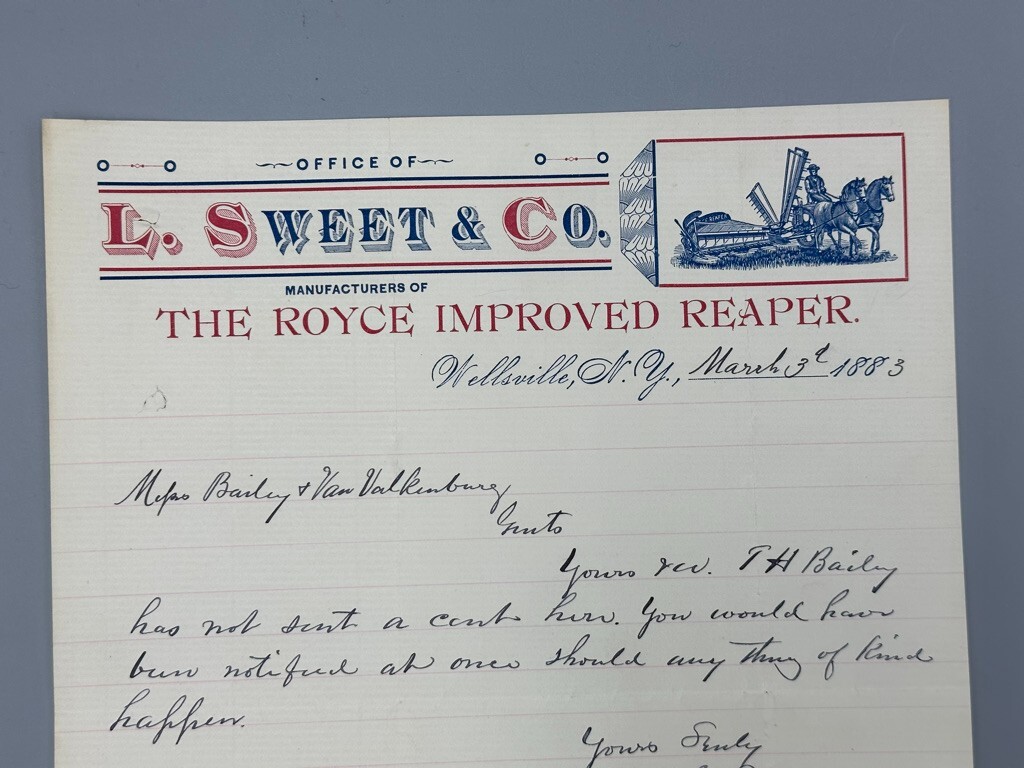 OFFICE OF
L. SWEET & CO.
MANUFACTURERS OF
THE ROYCE IMPROVED REAPER.
Wellsville, N. Y., March 3d 1883
Bailey & Van Valkenburg
Gents
Yours rec. T H Bailey
has not sent a cent here. You would have
been notified at once should any thing of kind
happen.
Yours Truly